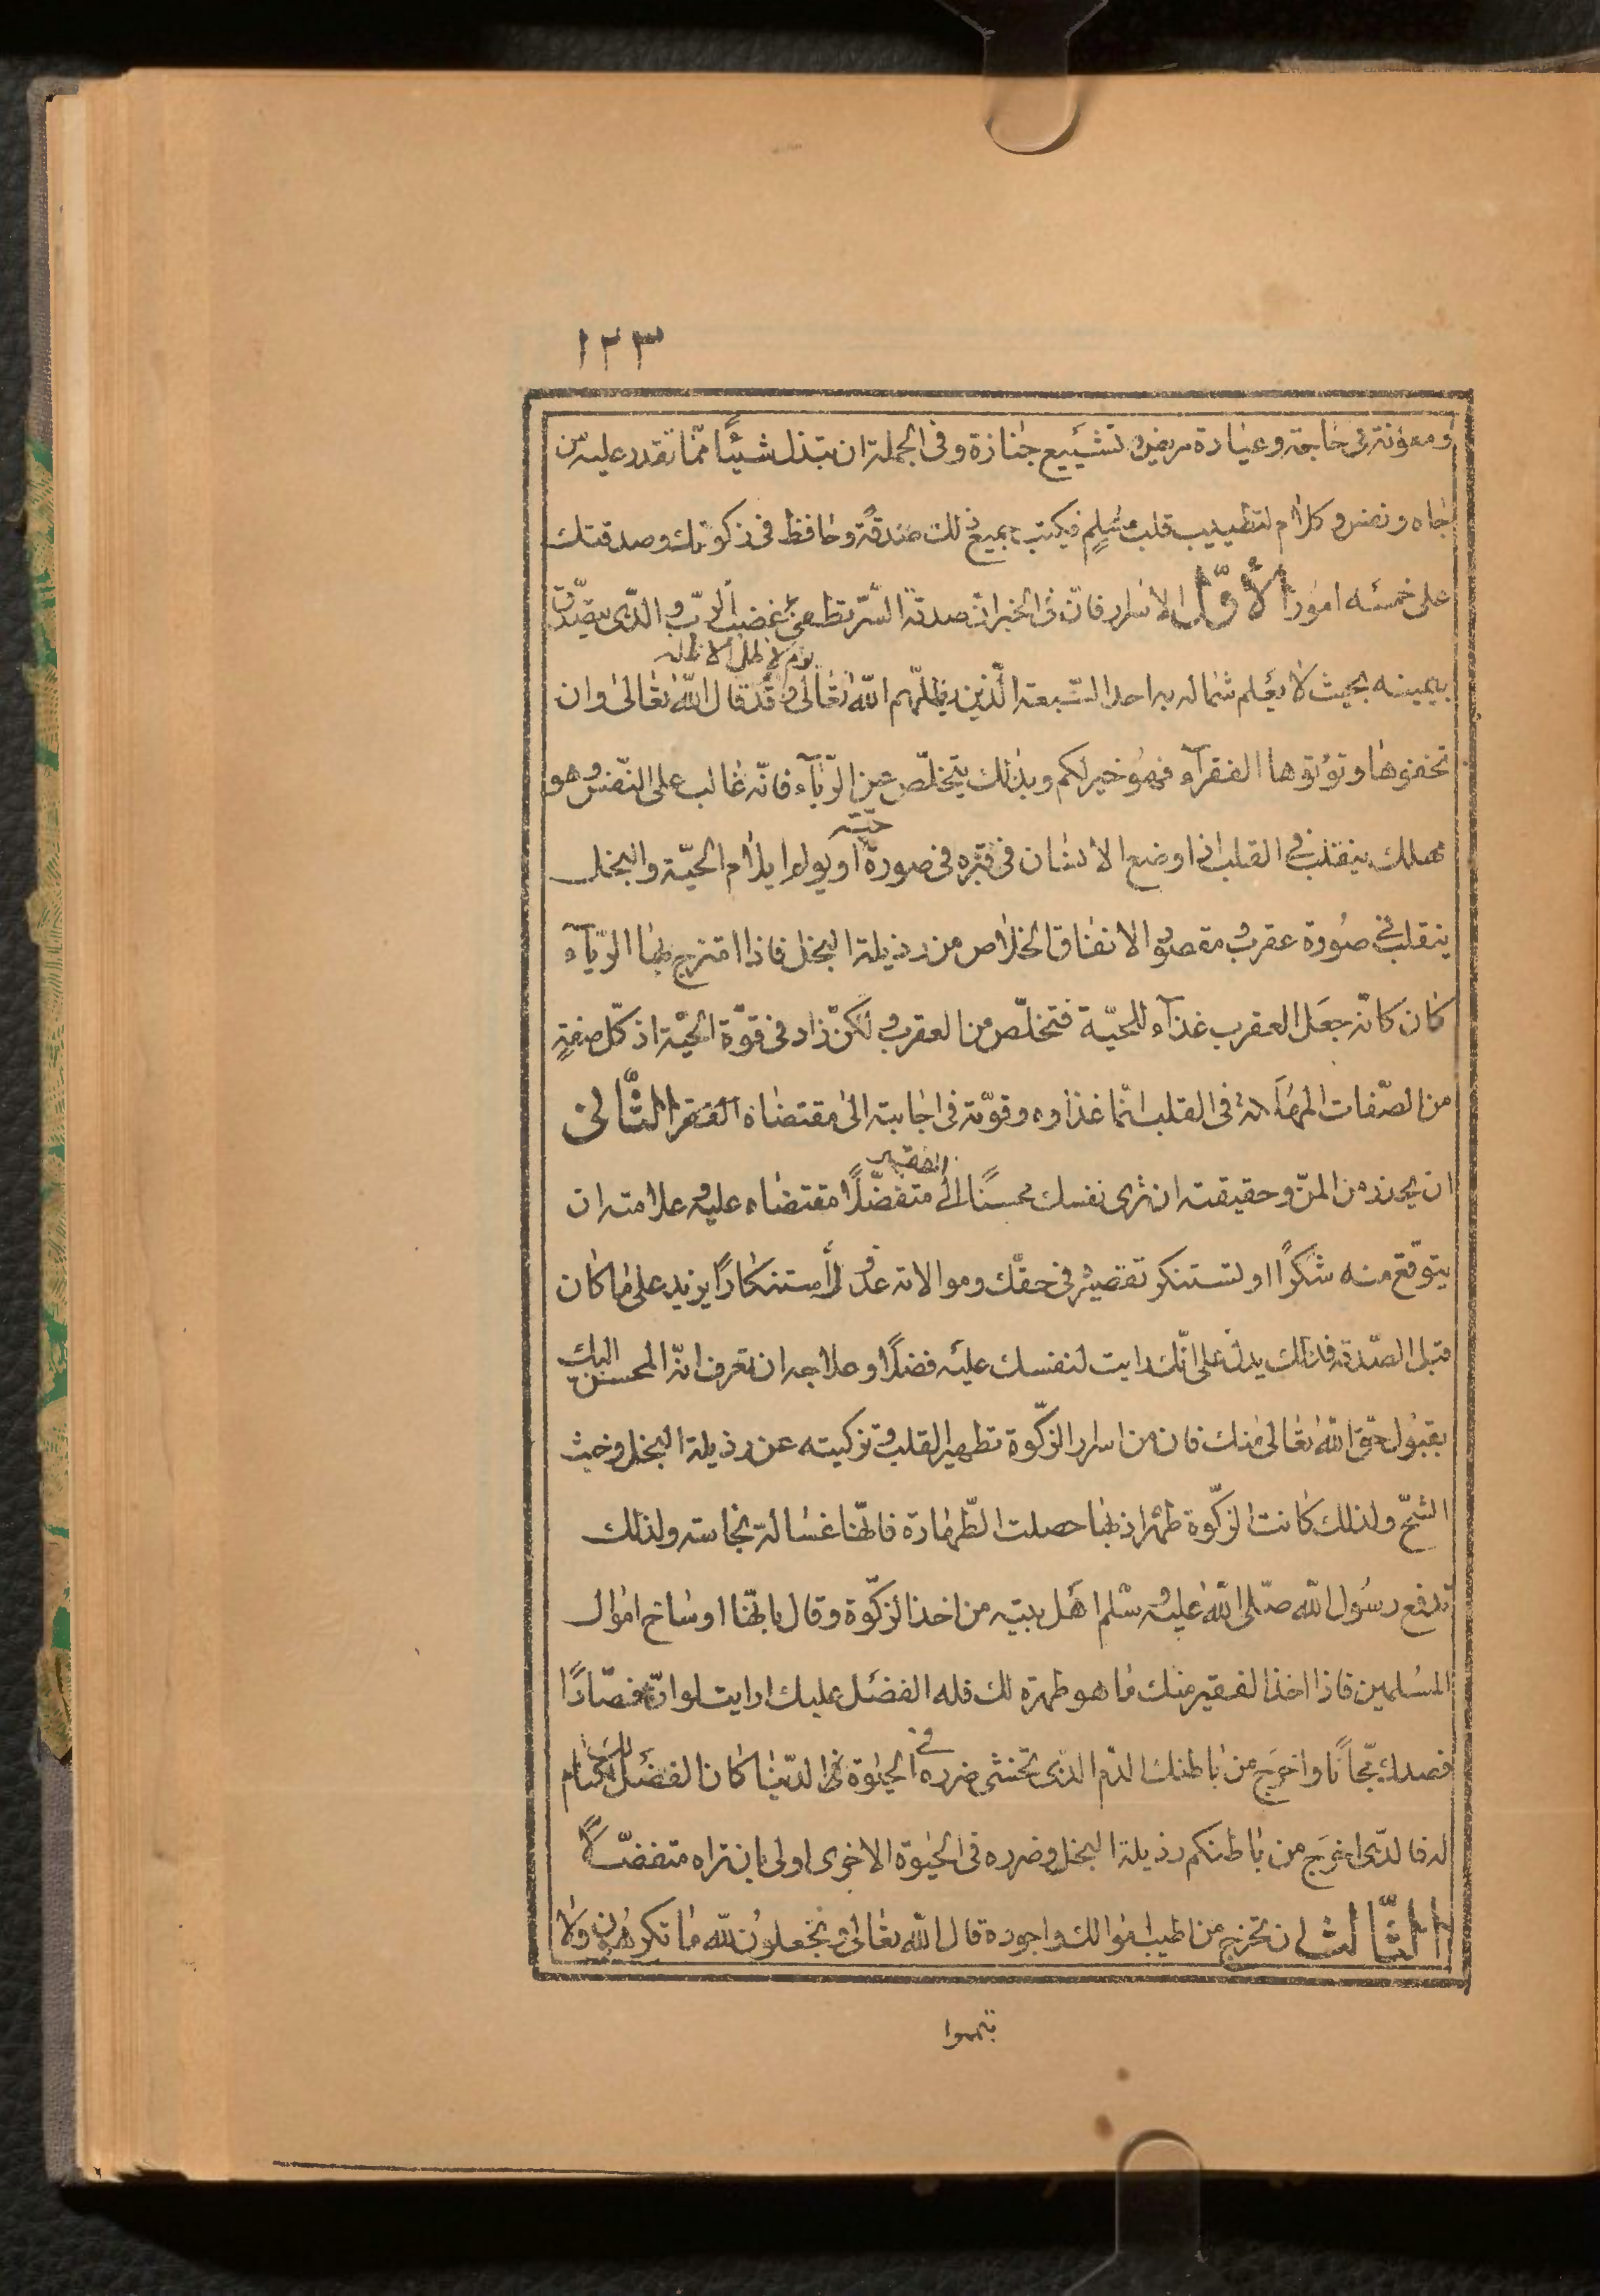 ١٢٣
ومعونة فى حاجة وعيادة مريض وتشييع جنازة وفى الجملة ان تبذل شيئًا ممّا تقدر عليه من
جاه ونفس وكلام لتطييب قلب مسلم فيكتب جميع ذلك صدقةً وحافظ فى زكوتك وصدقتك
على خمسة امور الأوّل الاسرار فانّ فى الخبر انّ صدقة السّرّ تطفئ غضب الرّبّ والّذى يتصدّق
يوم لا ظل الا ظله
بيمينه بحيث لا يعلم شماله به احد السّبعة الّذين يظلّهم اللّه تعالى وقد قال اللّه تعالى وان
تخفوها وتؤتوها الفقرآء فهو خير لكم وبذلك يتخلّص عن الرّيآء فانّه غالب على النّفس وهو
حيّة
مهلك ينقلب فى القلب اذا وضع الانسان فى قبره فى صورة او يولم ايلام الحيّة والبخل
ينقلب فى صورة عقرب ومقصود الانفاق الخلاص من رذيلة البخل فاذا امتزج بها الرّيآء
كان كانّه جعل العقرب غذآء للحيّة فتخلّص من العقرب ولكن زاد فى قوّة الحيّة اذ كلّ صفةٍ
من الصّفات المهلكة فى القلب انّما غذاوه وقوّته فى اجابته الى مقتضاه الفقر الثّانى
الفقير
ان يحذر من المنّ وحقيقته ان ترى نفسك محسنًا الى متفضّلًا مقتضاه عليه وعلامته ان
يتوقّع منه شكرًا او تستنكر تقصيره فى حقّك وموالاته عدوّك استنكارًا يزيد على ما كان
قبل الصّدقة فذلك يدلّ على انّك رايت لنفسك عليه فضلًا وعلاجه ان تعرف انّه المحسن اليك
بقبول حقّ اللّه تعالى منك فان من اسرار الزّكوة تطهير القلب وتزكيته عن رذيلة البخل وخبث
الشّحّ ولذلك كانت الزّكوة طهرا اذ بها حصلت الطّهارة فانّها غسالة نجاسته ولذلك
ترفع رسول اللّه صلّى اللّه عليه وسلّم اهل بيته من اخذ الزّكوة وقال بانّها اوساخ اموال
المسلمين فاذا اخذ الفقير منك ما هو طهرة لك فله الفضل عليك ارايت لو انّ فصّادًا
فصدك مجّانًا واخرج من باطنك الدّم الّذى تخشى ضرره فى الحيوة الدّنيا كان الفضل لك ام
له فالّذى اخرج من باطنكم رذيلة البخل وضرره فى الحيوة الاخرى اولى بان تراه متفضّلًا
الثّالث ان تخرج من اطيب اموالك واجوده قال اللّه تعالى ويجعلون للّه ما تكرهون ولا
تيمموا